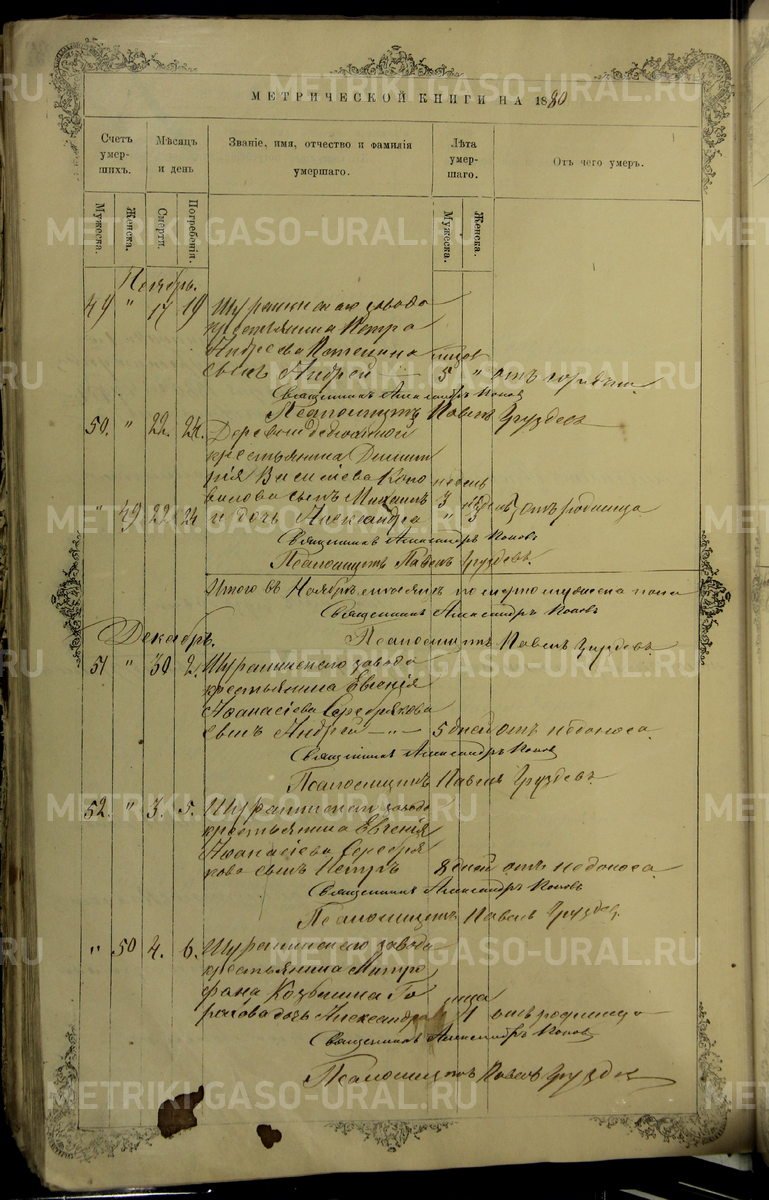 МЕТРИЧЕСКОЙ КНИГИ НА 1880
Счетъ умершихъ.
Мѣсяцъ и день
Званіе, имя, отчество и фамилія умершаго.
Лѣта умершаго.
Отъ чего умеръ.
Мужеска.
Женска.
Смерти.
Погребенія.
Мужеска.
Женска.
Ноябрь.
49 " 17 19 завода
крестьянина Петра
Андреева
сынъ Андрей 5 " отъ
Священникъ Александръ Поповъ
Псаломщикъ Павелъ Груздевъ
50. " 22. 24. Деревни
крестьянина Димит
рія Василіева Коно
валова сынъ Михаилъ 3 недѣль
" 49 22 24 и дочь Александра " 3 отъ родимца
Священникъ Александръ Поповъ
Псаломщикъ Павелъ Груздевъ.
Итого въ Ноябрѣ мужеска пола
Священникъ Александръ Поповъ
Псаломщикъ Павелъ Груздевъ
Декабрь.
51 " 30 2. завода
крестьянина Евгенія
Аѳанасіева Серебрякова
сынъ Андрей — " — 5 дней отъ недоноса
Священникъ Александръ Поповъ
Псаломщикъ Павелъ Груздевъ
52. " 3. 5. завода
крестьянина Евгенія
Аѳанасіева Серебря
кова сынъ Петръ 8 дней отъ недоноса
Священникъ Александръ Поповъ
Псаломщикъ Павелъ Груздевъ.
" 50 4. 6. завода
крестьянина Митро
фана Козьмина
дочь Александра 1 отъ родимца
Священникъ Александръ Поповъ
Псаломщикъ Павелъ Груздевъ
METRIKI.GASO-URAL.RU